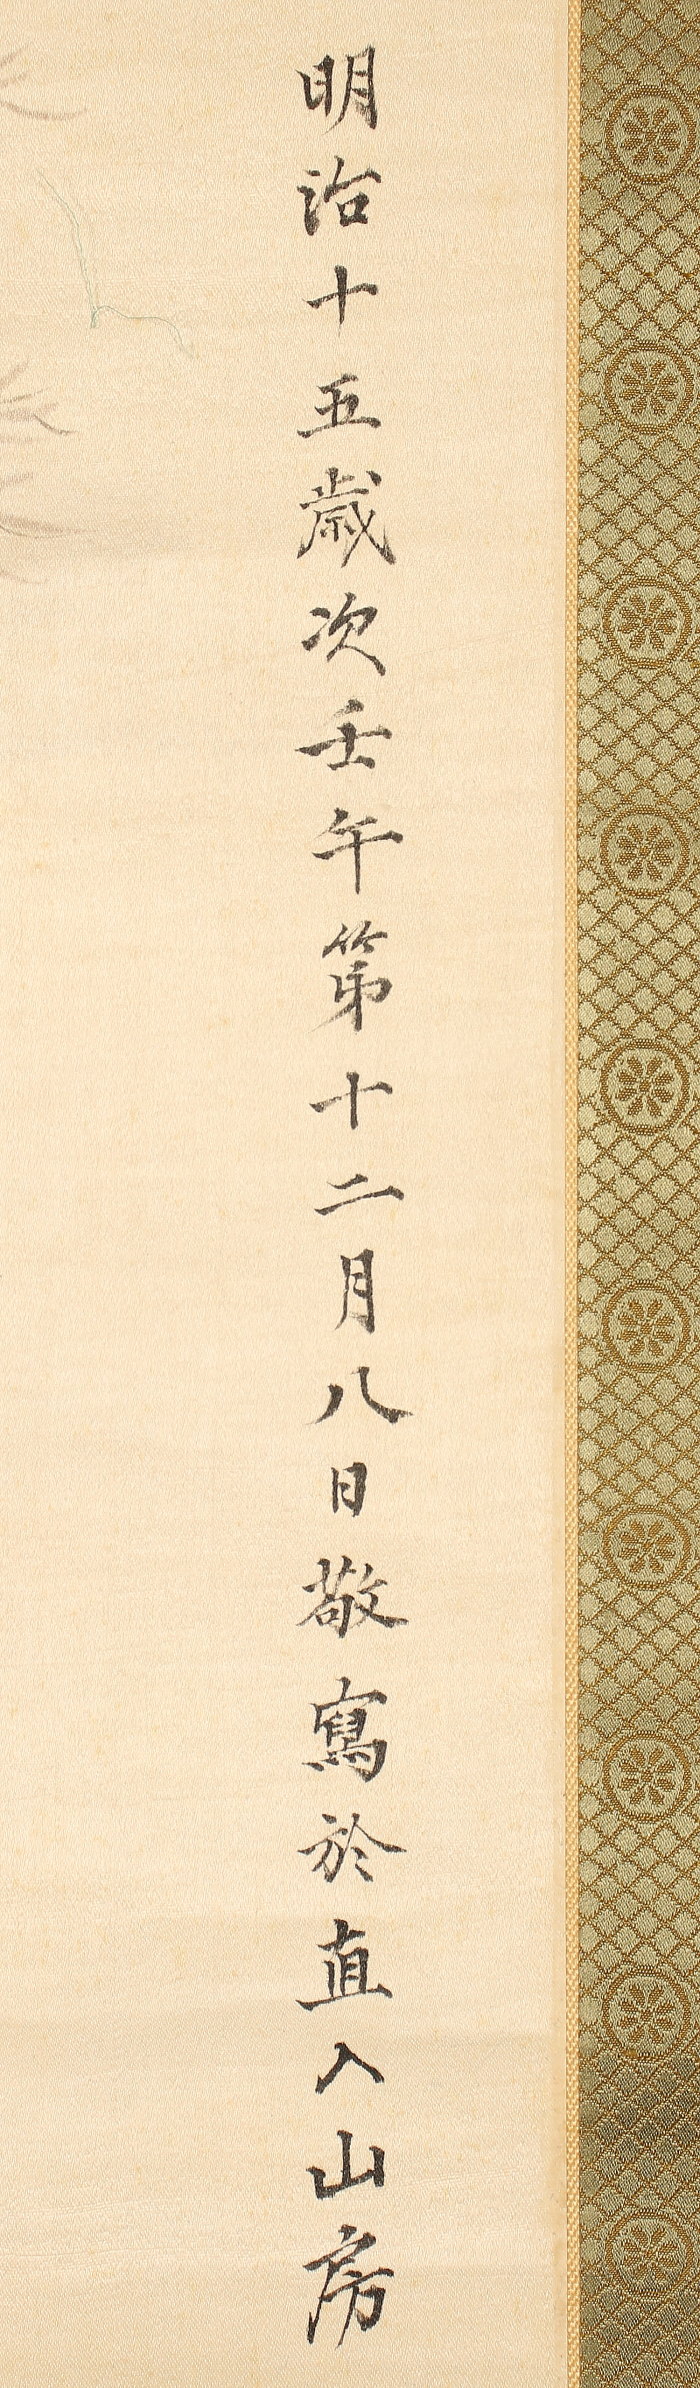 明治十五歳次壬午第十二月八日敬寫於直入山房